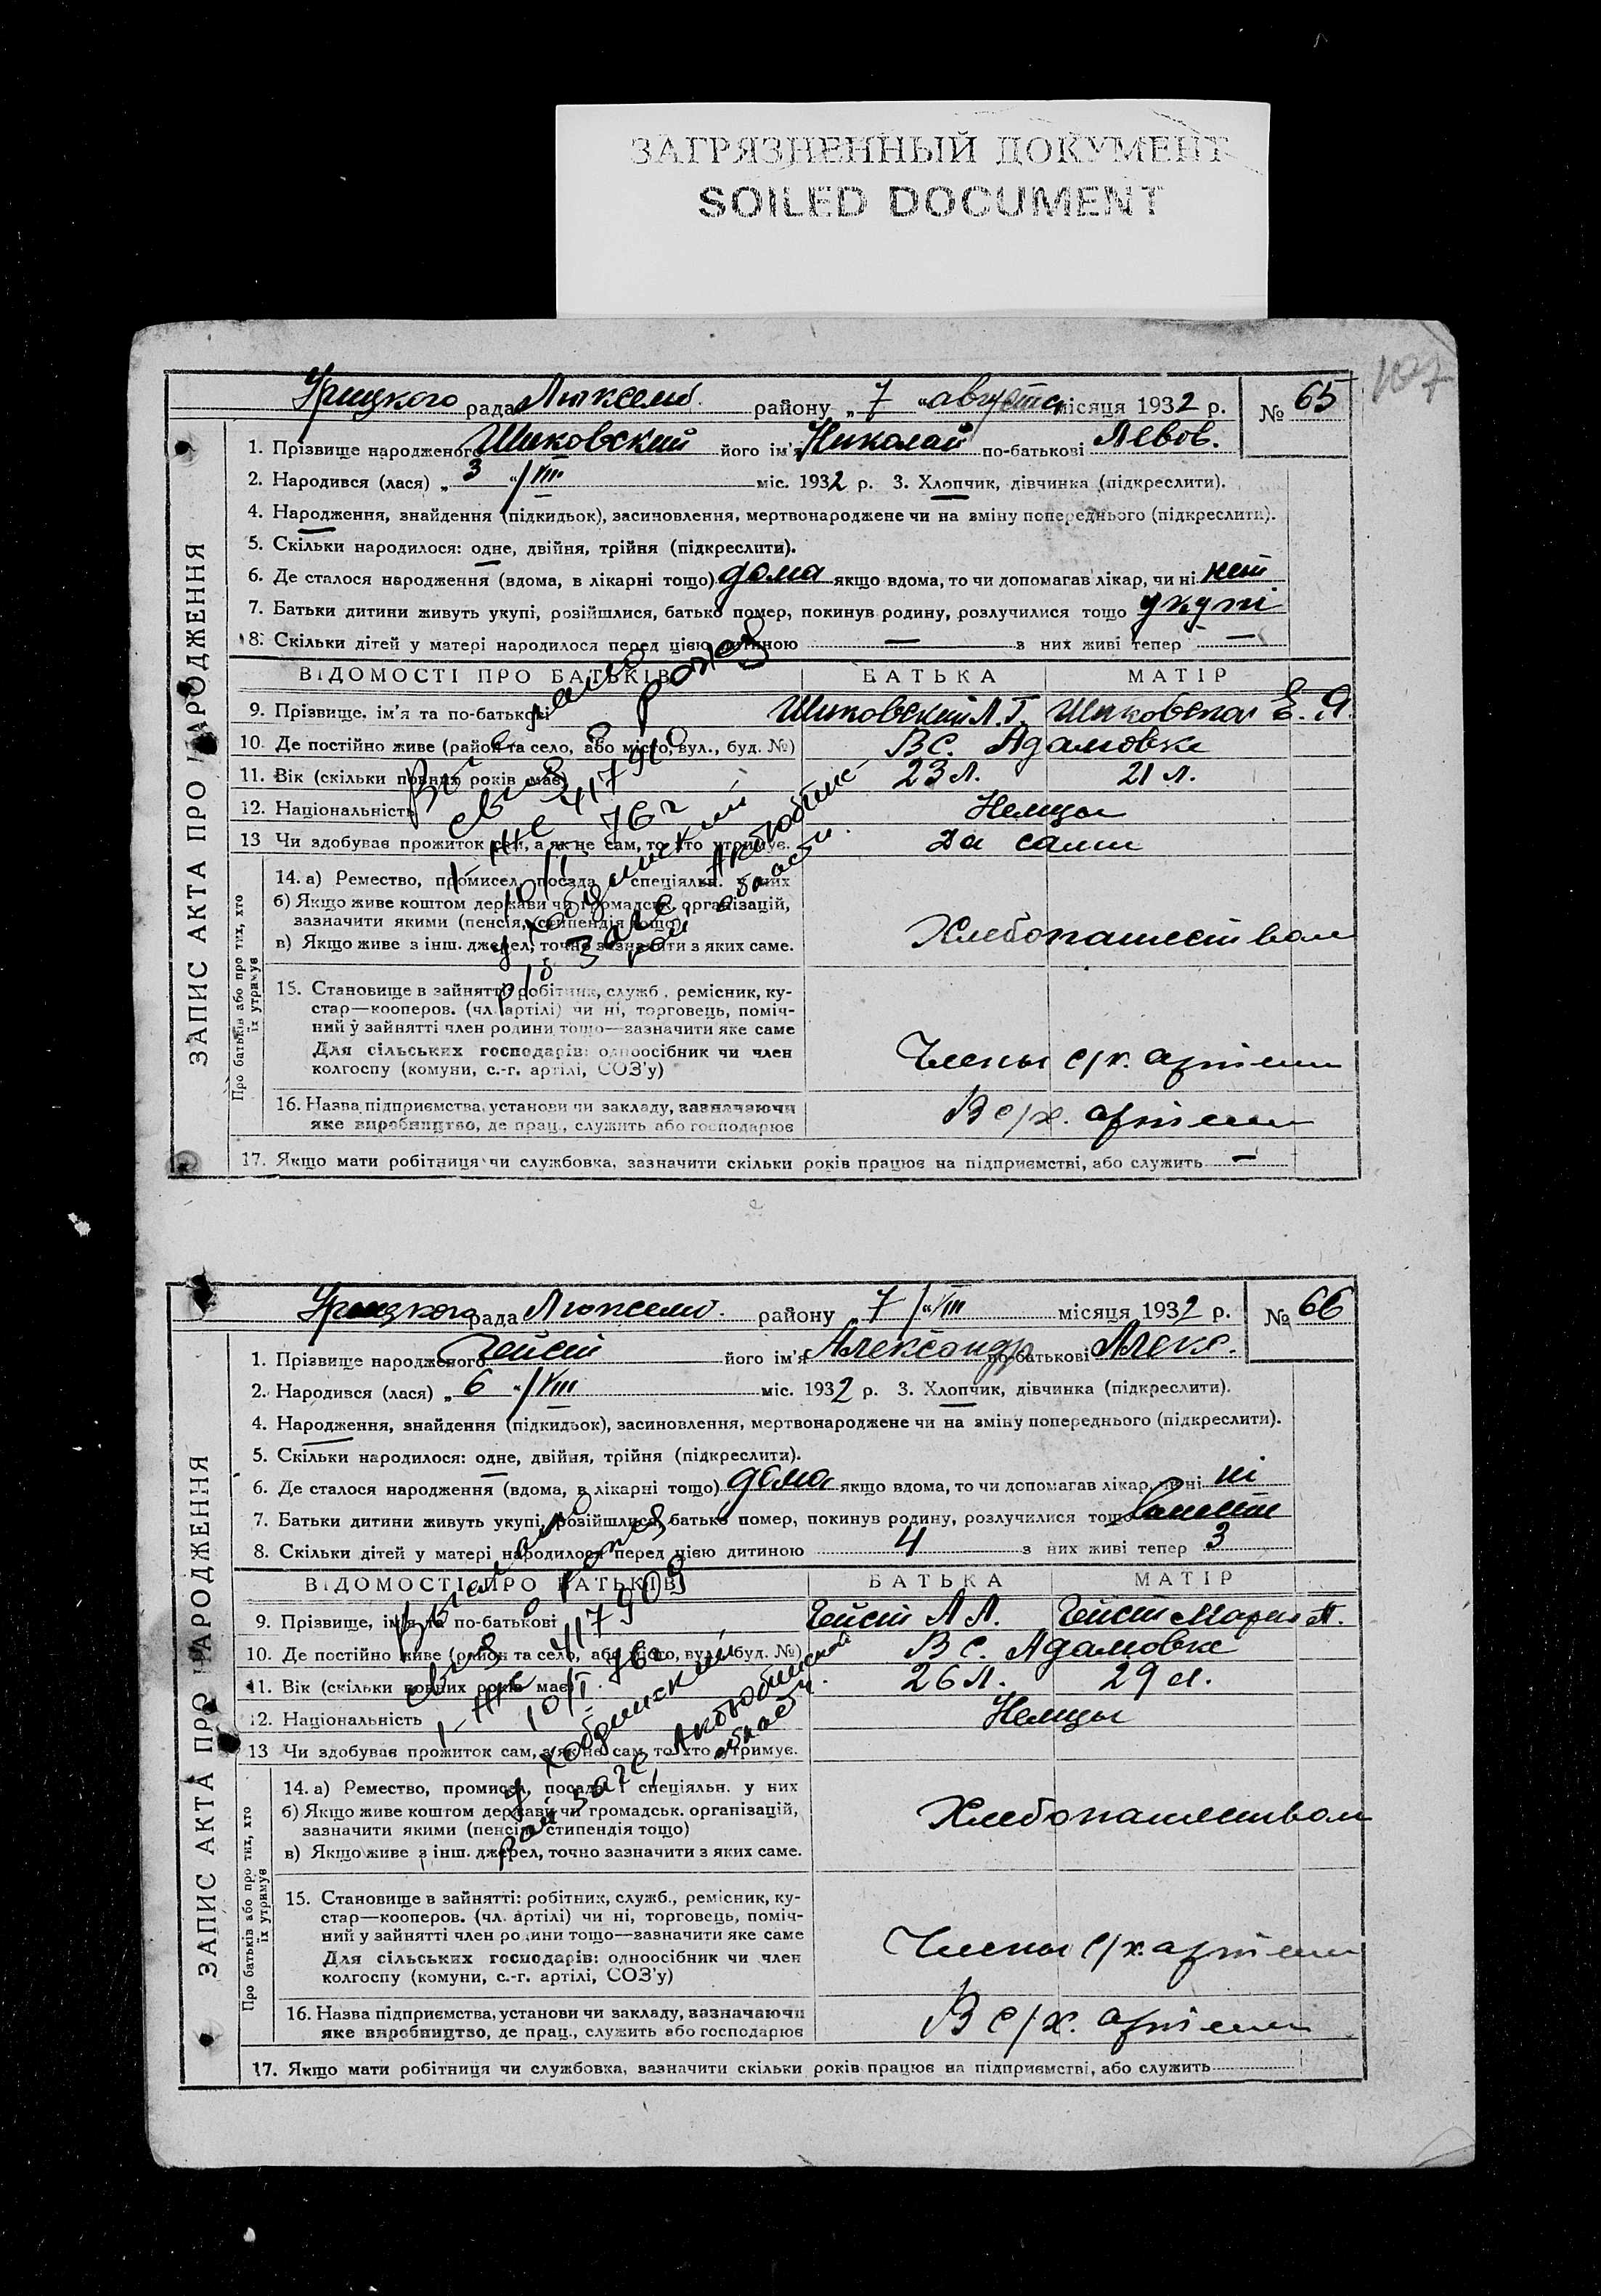 ЗАГРЯЗНЕННЫЙ ДОКУМЕНТ
SOILED DOCUMENT
107
Урицкого рада Люксемб. району „ 7 “ августа місяця 1932 р. № 65
ЗАПИС АКТА ПРО НАРОДЖЕННЯ
1. Прізвище народженого Шиковский його ім'я Николай по-батькові Левов.
2. Народився (лася) „ 3 “ /VIII міс. 1932 р. 3. Хлопчик, дівчинка (підкреслити).
4. Народження, знайдення (підкидьок), засиновлення, мертвонароджене чи на зміну попереднього (підкреслити).
5. Скільки народилося: одне, двійня, трійня (підкреслити).
6. Де сталося народження (вдома, в лікарні тощо) дома якщо вдома, то чи допомагав лікар, чи ні нет
7. Батьки дитини живуть укупі, розійшлися, батько помер, покинув родину, розлучилися тощо укупі
8. Скільки дітей у матері народилося перед цією дитиною — з них живі тепер —
ВІДОМОСТІ ПРО БАТЬКІВ БАТЬКА МАТІР
9. Прізвище, ім'я та по-батькові Шиковский Л. Г. Шиковская Е. Я.
10. Де постійно живе (район та село, або місто, вул., буд. №) В С. Адамовке
11. Вік (скільки повних років має) 23 л. 21 л.
12. Національність Немцы
13 Чи здобуває прожиток сам, а як не сам, то хто утримує. Да сами
Про батьків або про тих, хто їх утримує
14. а) Ремество, промисел, посада і спеціяльн. у них
б) Якщо живе коштом держави чи громадськ. організацій,
зазначити якими (пенсія, стипендія тощо)
в) Якщо живе з інш. джерел, точно зазначити з яких саме.
Хлебопашеством
15. Становище в зайнятті: робітник, служб., ремісник, ку-
стар—кооперов. (чл. артілі) чи ні, торговець, поміч-
ний у зайнятті член родини тощо—зазначити яке саме
Для сільських господарів: одноосібник чи член
колгоспу (комуни, с.-г. артілі, СОЗ'у)
Члены с/х. артели
16. Назва підприємства, установи чи закладу, зазначаючи
яке виробництво, де прац., служить або господарює
В с/х. артели
17. Якщо мати робітниця чи службовка, зазначити скільки років працює на підприємстві, або служить —
Выслано
свид о рожд
I-НЕ 417910
10/I 76г
Хобдинский
р/б ЗАГС Актюбинс-
рай области.
Урицкого рада Люксемб. району „ 7 “ /VIII місяця 1932 р. № 66
ЗАПИС АКТА ПРО НАРОДЖЕННЯ
1. Прізвище народженого Гейст його ім'я Александр по-батькові Алекс.
2. Народився (лася) „ 6 “ /VIII міс. 1932 р. 3. Хлопчик, дівчинка (підкреслити).
4. Народження, знайдення (підкидьок), засиновлення, мертвонароджене чи на зміну попереднього (підкреслити).
5. Скільки народилося: одне, двійня, трійня (підкреслити).
6. Де сталося народження (вдома, в лікарні тощо) дома якщо вдома, то чи допомагав лікар, чи ні ні
7. Батьки дитини живуть укупі, розійшлися, батько помер, покинув родину, розлучилися тощо
8. Скільки дітей у матері народилося перед цією дитиною 4 з них живі тепер 3
ВІДОМОСТІ ПРО БАТЬКІВ БАТЬКА МАТІР
9. Прізвище, ім'я та по-батькові Гейст А А. Гейст Мария А.
10. Де постійно живе (район та село, або місто, вул., буд. №) В С. Адамовке
11. Вік (скільки повних років має) 26 л. 29 л.
12. Національність Немцы
13 Чи здобуває прожиток сам, а як не сам, то хто утримує.
Про батьків або про тих, хто їх утримує
14. а) Ремество, промисел, посада і спеціяльн. у них
б) Якщо живе коштом держави чи громадськ. організацій,
зазначити якими (пенсія, стипендія тощо)
в) Якщо живе з інш. джерел, точно зазначити з яких саме.
Хлебопашеством
15. Становище в зайнятті: робітник, служб., ремісник, ку-
стар—кооперов. (чл. артілі) чи ні, торговець, поміч-
ний у зайнятті член родини тощо—зазначити яке саме
Для сільських господарів: одноосібник чи член
колгоспу (комуни, с.-г. артілі, СОЗ'у)
Члены с/х. артели
16. Назва підприємства, установи чи закладу, зазначаючи
яке виробництво, де прац., служить або господарює
В с/х. артели
17. Якщо мати робітниця чи службовка, зазначити скільки років працює на підприємстві, або служить
Выслано
свид о рожд
I-НЕ 417909
10/I. 76г
Хобдинский
рай ЗАГС Актюбинской
област.